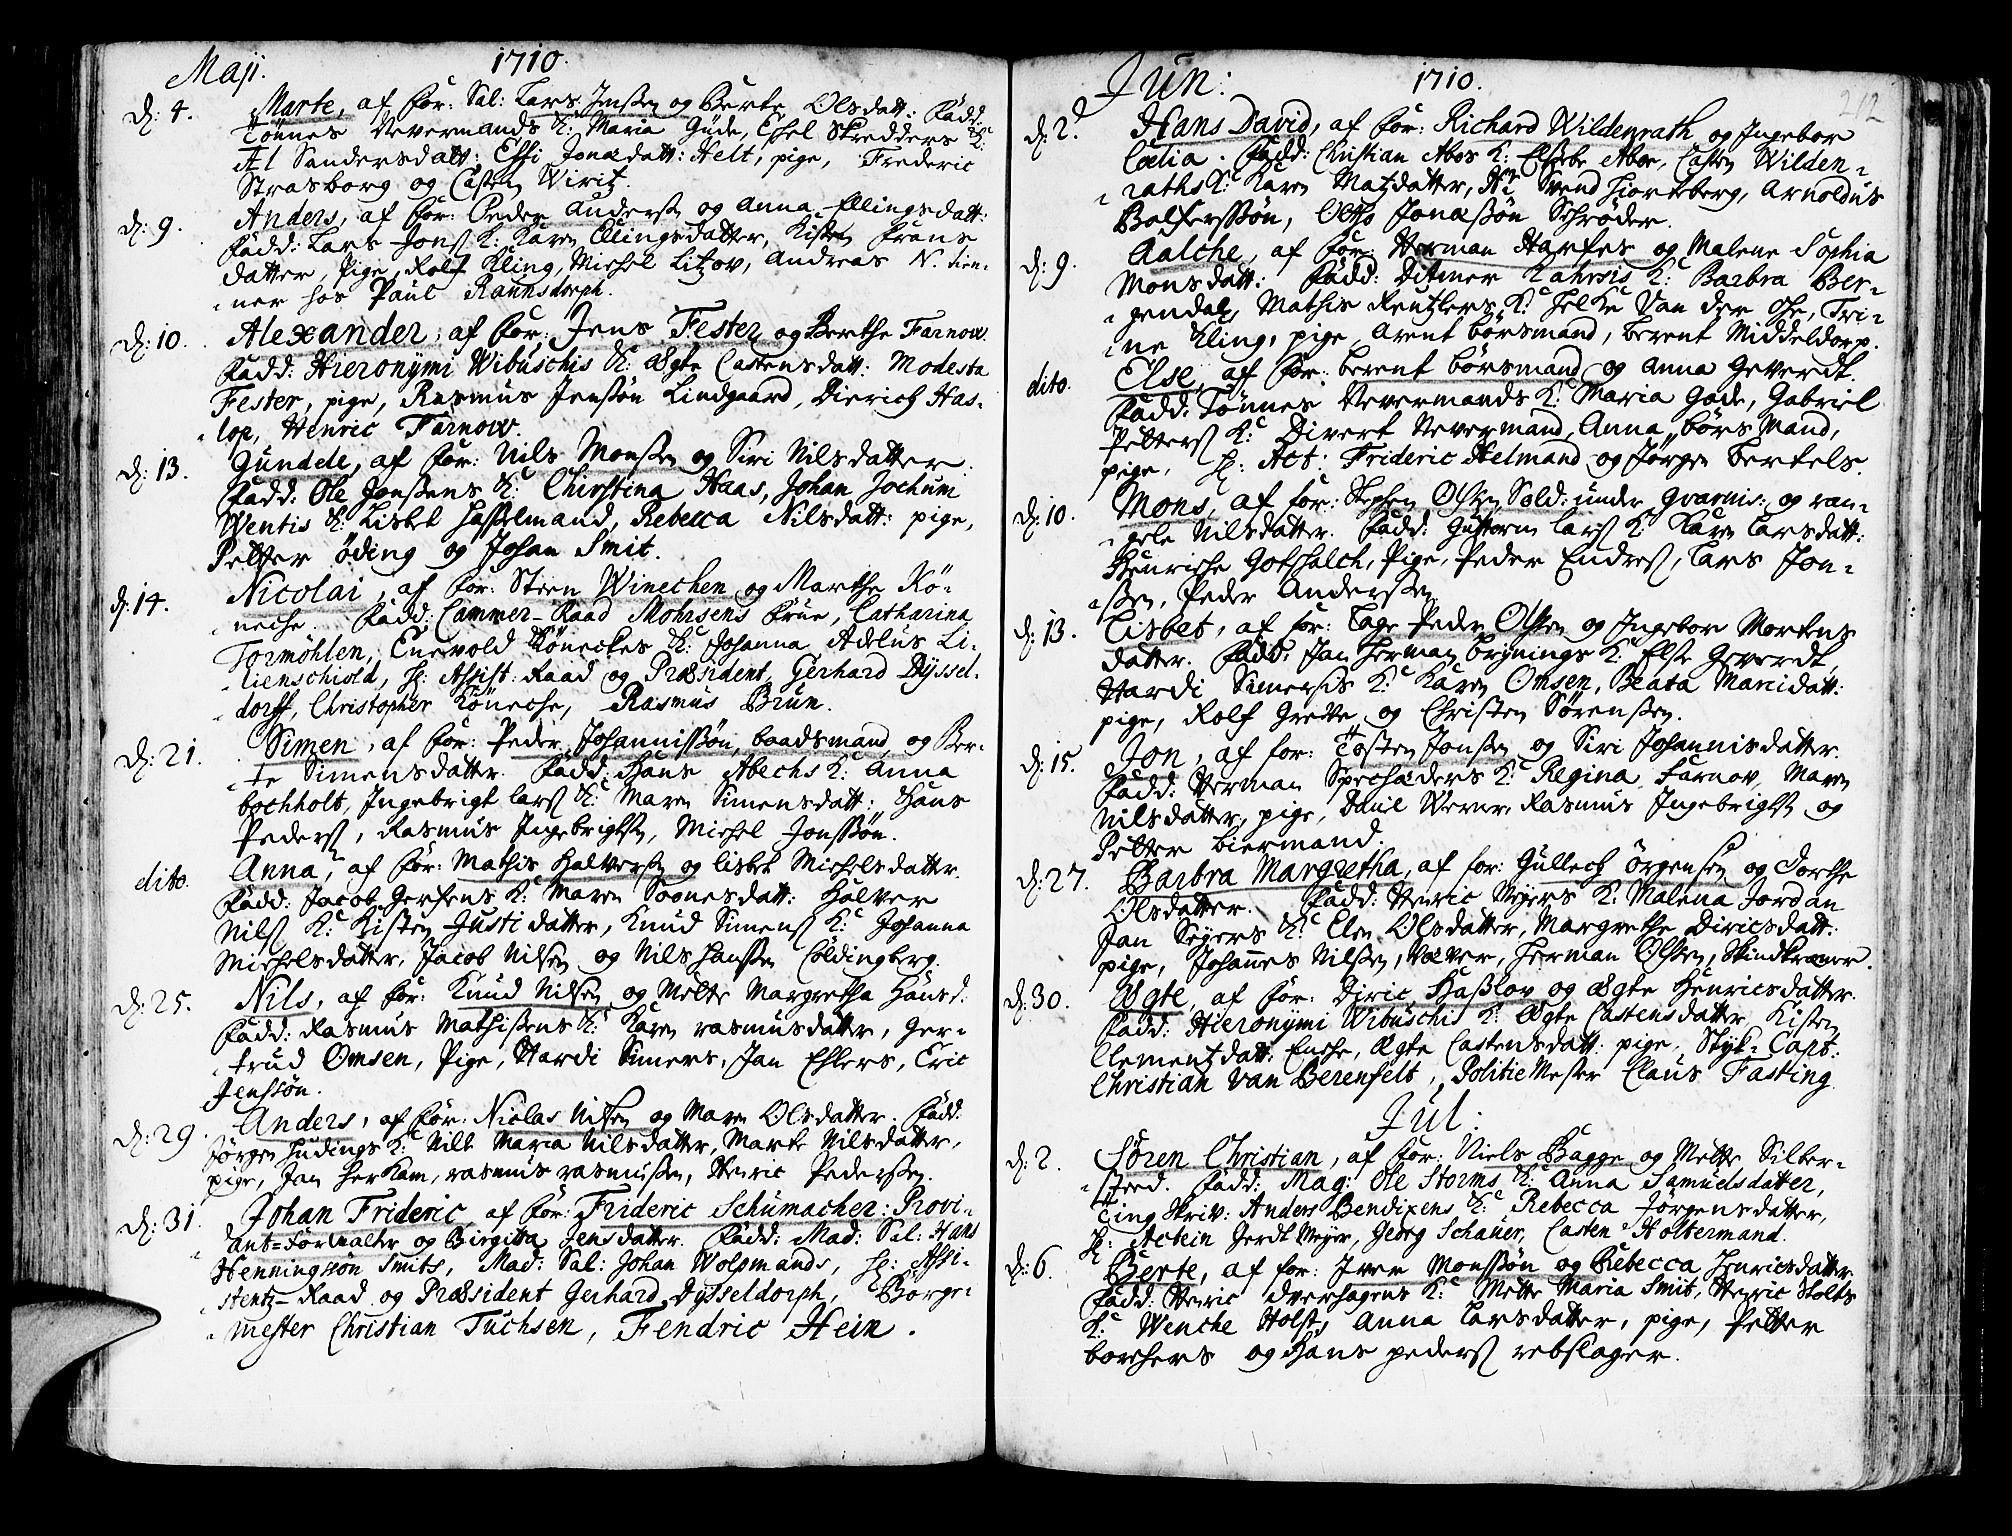 Maji. 1710.
d: 4. Marte, af for: Sal: Lars Jenssen og Berte Olsdatt: Fadd:
Tönnes Nevermands K: Maria Gude, Skredders K:
Al Sandersdatt: Effi Jonædatt: Helt, pige, Frederic
Strasborg og Casten Wiritz.
d: 9. Anders, af for: Peder Anderss og Anna Ellingsdatt:
Fadd: Lars Jons K: Karen Ellingsdatter, Kisten Frans
datter, Pige, Rolf Kling, Michel Litzov, Andreas N. tien-
ner hos Paul Raunsdorph.
d: 10. Alexander, af for: Jens Fester og Berthe Farnow.
Fadd: Hieronymi Wibuschis K: Ægte Castensdatt: Modesta
Fester, pige, Rasmus Jenssön Lindgaard, Dierich Has-
lop, Henric Farnow.
d: 13. Gundele, af for: Nils Monssen og Siri Nilsdatter.
Fadd: Ole Jenssens K: Chirstina Haas, Johan Jochum
Wentis K: Lisbet Hasselmand, Rebecca Nilsdatt: pige,
Petter öding og Johan Smit.
d: 14. Nicolai, af for: Steen Winechen og Marthe Kö-
neche. Fadd: Cammer-Raad Mohrsens Frue, Catharina
Tormöhlen, Enevold Köneckes K: Johanna Adelus Li-
lienschiold, H: Assist: Raad og Præsident Gerhard Dyssel-
dorff, Christopher Köneche, Rasmus Brun.
d: 21. Simen, af for: Peder Johannissön, baadsmand, og Ber-
te Simensdatter. Fadd: Hans Abechs K: Anna
bochholt, Ingebrigt lars K: Maren Simensdatt: Hans
Peders, Rasmus Ingebrigts, Michel Jonssön.
dito. Anna, af for: Mathis Halvorss og lisbet Michelsdatter.
Fadd: Jacob Gerfens K: Maren Sognesdatt: Halver
Nils K: Kisten Justidatter, Knud Simens K: Johanna
Michelsdatter, Jacob Nilsen og Nils Hanssen Coldingberg.
d: 25. Nils, af for: Knud Nilsen og Mette Margretha Hansd.
Fadd: Rasmus Mathissens K: Karen rasmusdatter, Ger-
trud Omsen, Pige, Hardi Simers, Jan Ehlers, Eric
Jenssön.
d: 29. Anders, af for: Niclas Nilsen og Maren Olsdatter. Fadd:
Jörgen Hudings K: Nille Maria Nilsdatter, Marte Nilsdatter,
pige, Jan Herkam, rasmus rasmussen, Henric Pederssen.
d: 31. Johan Frideric, af for: Frideric Schumacher: Provi-
ant-Forvalter og Birgitta Jensdatter. Fadd: Mad: Sal: Hans
Henningsön Smits, Mad: Sal: Johan Wolpmands, H: Assi-
stentz-Raad og Præsident Gerhard Dysseldorph, Borge-
mester Christian Tuchsen, Fendric Hein.
Jun: 1710. 212
d: 2. Hans David, af for: Richard Wildenrath og Ingebor
Cælia. Fadd: Christian Abos K: Elsebe Aboe, Casten Wilden-
raths K: Karen Matzdatter, Hr Svend Hiorteberg, Arnoldus
Bolferssön, Otto Jonæssön Schröder.
d: 9. Aalche, af for: Herman Harfes og Malene Sophia
Monsdatt: Fadd: Ditmer Kahrsis K: Barbra Ber-
gendal, Mathis Reutzlers K: Helke Van der Ohe, Tri-
ne Kling, pige, Arent börsmand, berent Middeldorp.
dito. Else, af for: berent börsmand og Anna Geverdt.
Fadd: Tönnes Nevermands K: Maria Gode, Gabriel
Petters K: Divert Nevermand, Anna börsmand,
pige, H: Act: Frideric Helmand og Jörgen bertels.
d: 10. Mons, af for: Stephen Olssen, Sold: under Gvarnis: og ran-
gele Nilsdatter. Fadd: Guttorm lars K: Karen Larsdatt:
Henriche Gotschalch, Pige, Peder Endres, Lars Jon-
ssen, Peder Anderssen.
d: 13. Lisbet, af for: Tage Peder Olssen og Ingebor Mortens
datter. Fadd: Jan Herman brynings K: Else Geverdt,
Hardi Simersis K: Karen Omsen, Beata Marcidatt:
pige, Rolf Grette og Christen Sörenssen.
d: 15. Jon, af for: Tosten Jonssen og Siri Johannisdatter.
Fadd: Herman Spechæders K: Regina Farnov, Maren
Nilsdatter, pige, Paul Werner, Rasmus Ingebrigts og
Petter biermand.
d: 27. Barbra Margretha, af for: Gullech örgensen og Dorthe
Olsdatter. Fadd: Henric Meyers K: Malena Jordan
Jan Seyers K: Elen Olsdatter, Margrethe Diricsdatt:
pige, Johannes Nilssen, væver, Herman Olssen, Skindkræmer.
d: 30. Ægte, af for: Diric Hasslov og Ægte Henricsdatter.
Fadd: Hieronymi Wibuschis K: Ægte Castensdatter Kisten
Clementzdatt: Enche, Ægte Castensdatt: pige. Styk-Capt:
Christian Van Berenfelt, Politie Mester Claus Fasting
Jul:
d: 2. Sören Christian, af for: Niels Bagge og Mette Silber-
steed. Fadd: Mag: Ole Storms K: Anna Samuelsdatter,
Ting Skriv: Anders Bendixens K: Rebecca Jörgensdatter,
H: Actein Gerdt Meyer, Georg Schauer, Casten Holtermand.
d: 6. Berte, af for: Iven Monssön og Rebecca Henricsdatter
Fadd: Henric Overhagens K: Mette Maria Smit, Henric Holts
K: Wenche Holst, Anna Larsdatter, pige, Petter
borchers og Hans peders rebslager.